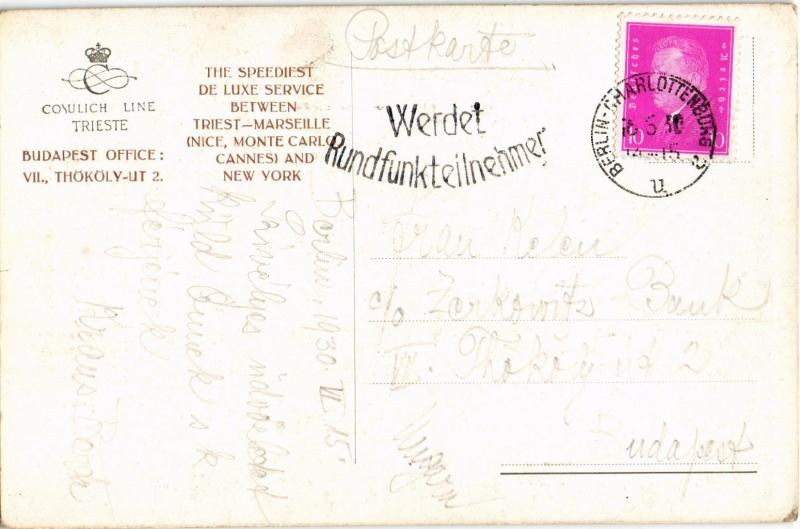 COSULICH LINE
TRIESTE
BUDAPEST OFFICE:
VII., THÖKÖLY-UT 2.
THE SPEEDIEST
DE LUXE SERVICE
BETWEEN
TRIEST—MARSEILLE
(NICE, MONTE CARLO,
CANNES) AND
NEW YORK
Postkarte
Werdet
Rundfunkteilnehmer
Deutsches Reich
10 10
BERLIN-CHARLOTTENBURG 2
u
Berlin, 1930. VI 15.
küld Önnek s k.
férjének
Frau Kelen
c/o Zerkowitz Bank
VII. Thököly út 2
Budapest
Ungarn